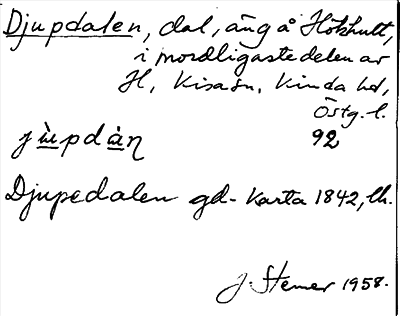 Djupdalen, dal, äng å Hokhult,
i nordligaste delen av
H, Kisa sn, Kinda hd,
Östg. l.
jùpdàn 92
Djupedalen gd - Karta 1842, lh.
J. Stemer 1958.